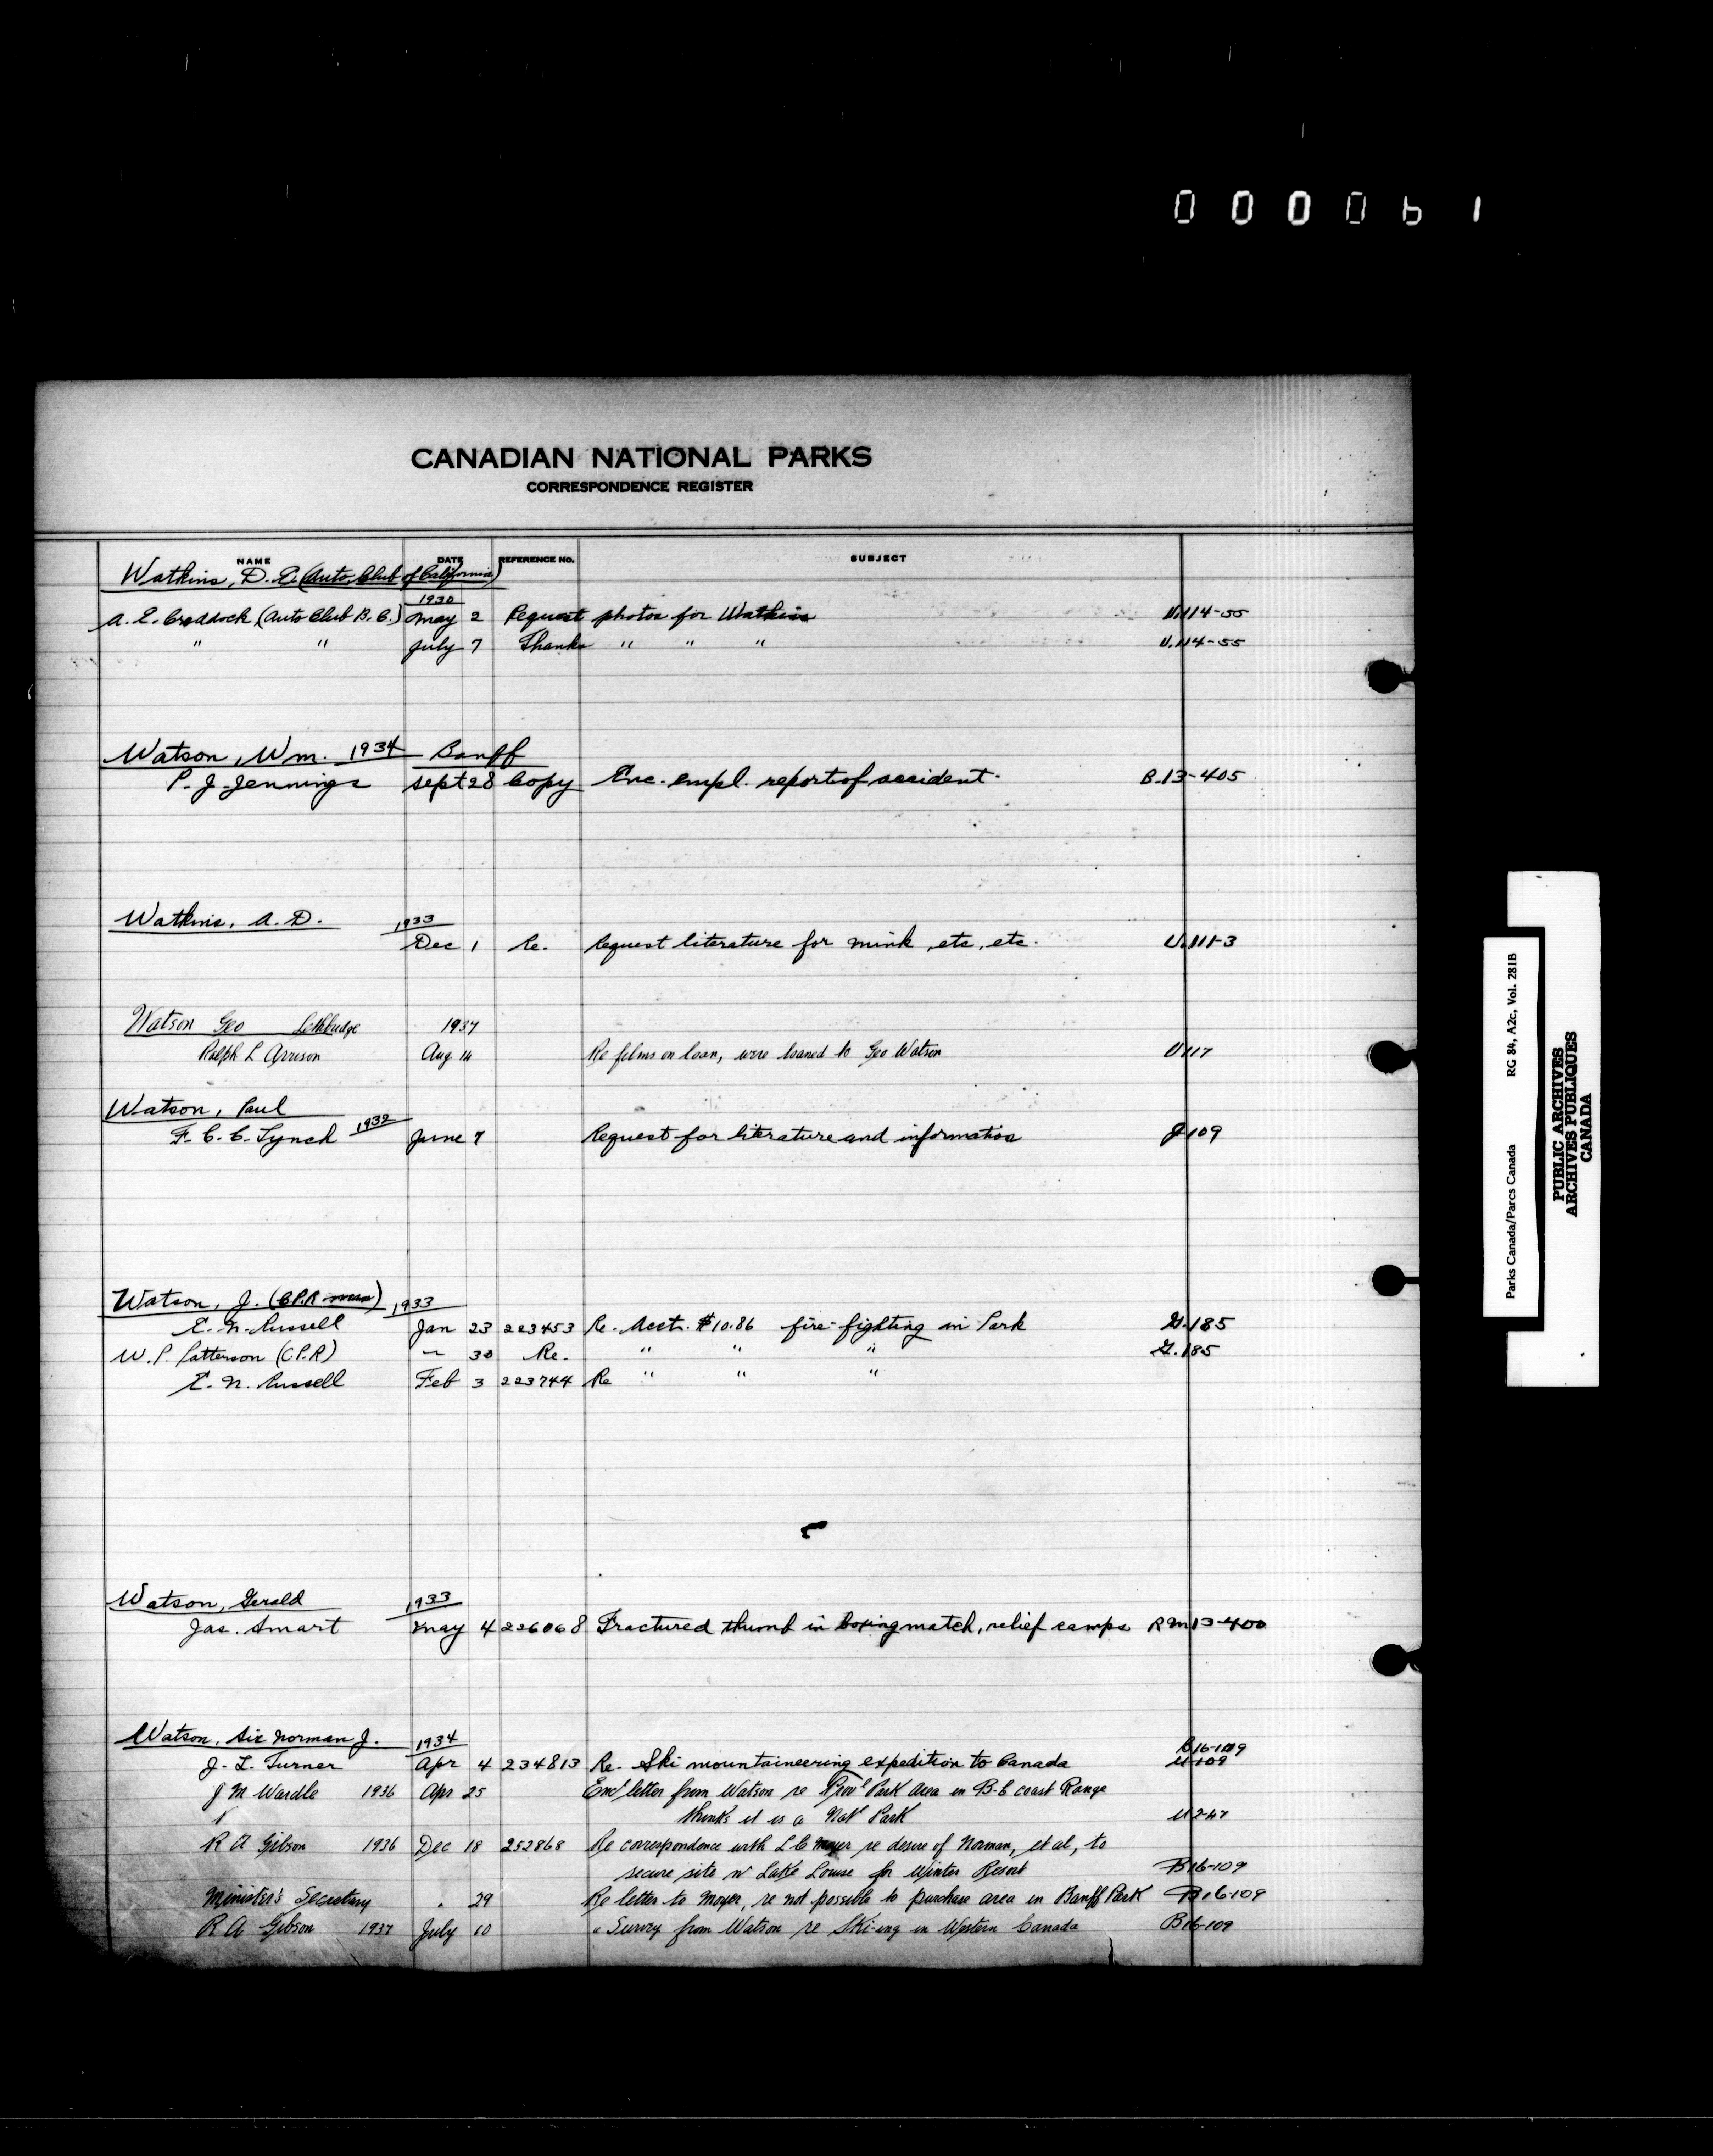 000061
CANADIAN NATIONAL PARKS
CORRESPONDENCE REGISTER
NAME DATE REFERENCE No. SUBJECT
Watkins, D. E. (Auto Club of California)
1930
A. E. Craddock (Auto Club B. C.) May 2 Request photos for Watkins U.114-55
" " July 7 Thanks " " " U.114-55
Watson, Wm. 1934 Banff
P. J. Jennings Sept 28 Copy Enc. empl. report of accident. B.13-405
Watkins, A. D. 1933
Dec 1 Re. Request literature for mink, etc, etc. U.111-3
Watson Geo Lethbridge 1937
Ralph L Arrison Aug 14 Re films on loan, were loaned to Geo Watson U117
Watson, Paul
F. C. C. Lynch 1932 June 7 Request for literature and information J109
Watson, J. (C.P.R. man) 1933
E. N. Russell Jan 23 223453 Re. Acct. $10.86 fire-fighting in Park G.185
W. P. Patterson (C.P.R) " 30 Re. " " " G.185
E. N. Russell Feb 3 223744 Re " " "
Watson, Gerald 1933
Jas. Smart May 4 226068 Fractured thumb in boxing match, relief camps RM13-400
Watson, Sir Norman J. 1934 B16-109
J. L. Turner Apr 4 234813 Re. Ski mountaineering expedition to Canada U109
J M Wardle 1936 Apr 25 Encl letter from Watson re Provl Park Area in B-C coast Range
thinks it is a Natl Park U2-47
R A Gibson 1936 Dec 18 252868 Re correspondence with L C Moyer re desire of Norman, et al, to
secure site nr Lake Louise for Winter Resort B16-109
Minister's Secretary " 29 Re letter to Moyer, re not possible to purchase area in Banff Park B16-109
R A Gibson 1937 July 10 " Survey from Watson re Ski-ing in Western Canada B16-109
Parks Canada/Parcs Canada RG 84, A2c, Vol. 281B
PUBLIC ARCHIVES
ARCHIVES PUBLIQUES
CANADA